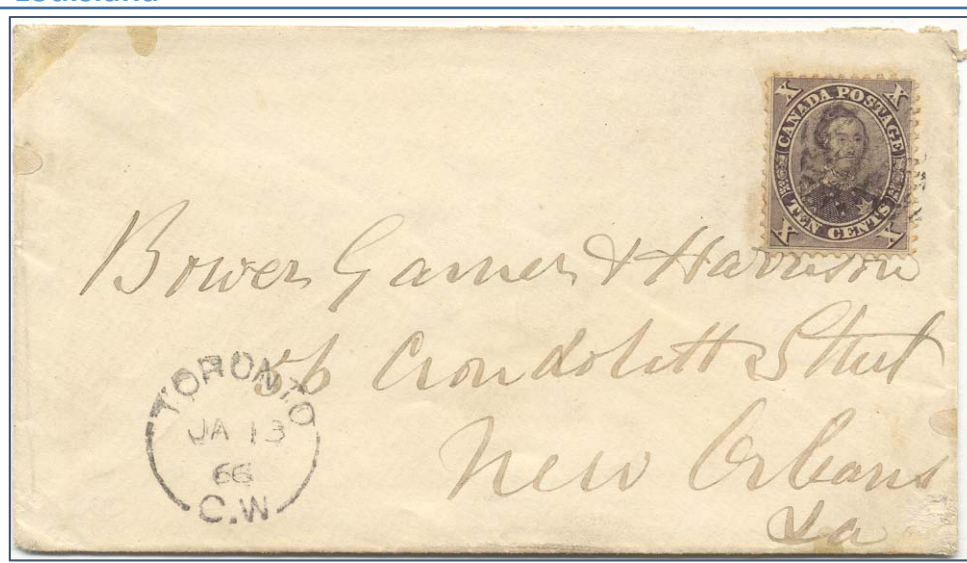 Louisiana
X CANADA POSTAGE X
X TEN CENTS X
Bower Garner & Harrison
56 Crondolett Street
New Orleans
La
TORONTO
JA 13
66
C.W.